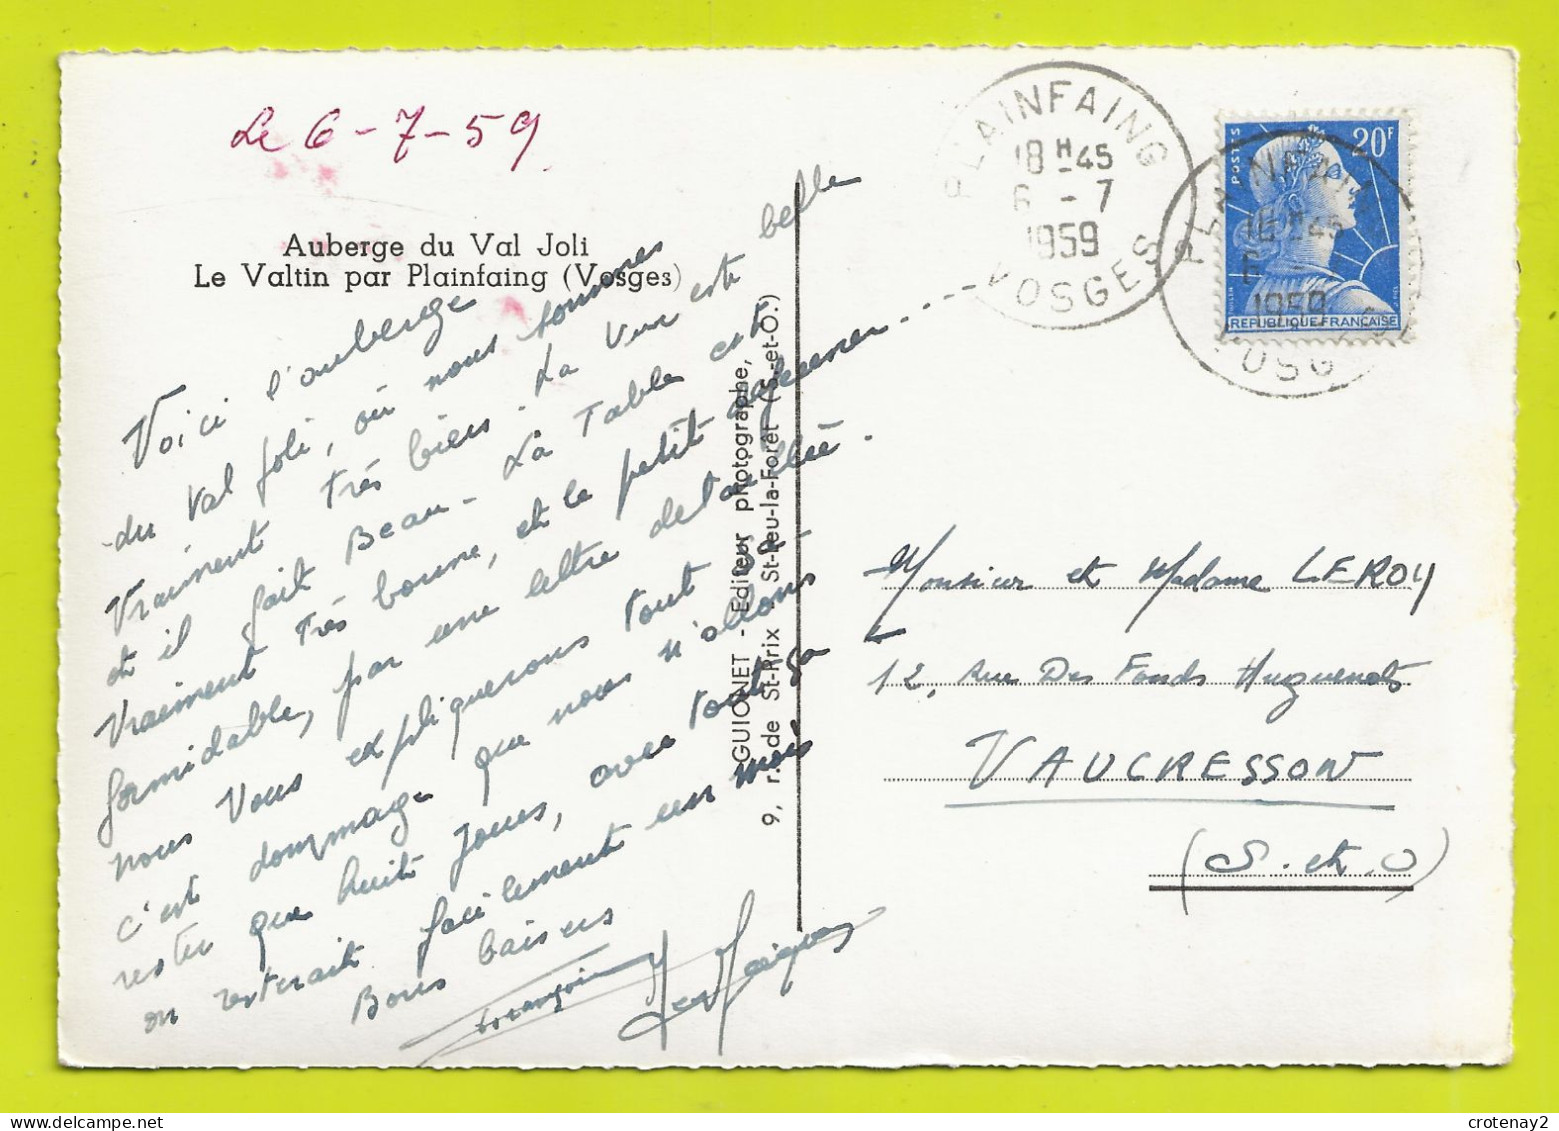 Le 6-7-59
Auberge du Val Joli
Le Valtin par Plainfaing (Vosges)
Voici l'auberge
du Val Joli, où nous sommes
Vraiment très biens. La Vue est belle
et il fait Beau - La Table est
Vraiment très bonne, et le petit déjeuner....----
formidable, par une lettre detaillée.
nous Vous expliquerons tout ça -
c'est dommage que nous n'allons
rester que huit jours, avec tout ça
on resterait facilement un mois
Bons baisers
Françoise Jacques
GUIONET - Editeur photographe,
9, r. de St-Prix St-Leu-la-Forêt (S.-et-O.)
PLAINFAING
18H45
6 - 7
1959
VOSGES
POSTES
20F
REPUBLIQUE FRANÇAISE
PLAINFAING
18H45
6 -
1959
VOSGES
Monsieur et Madame LEROY
12, rue Des Fonds Huguenots
VAUCRESSON
(S. et. O)
crotenay2